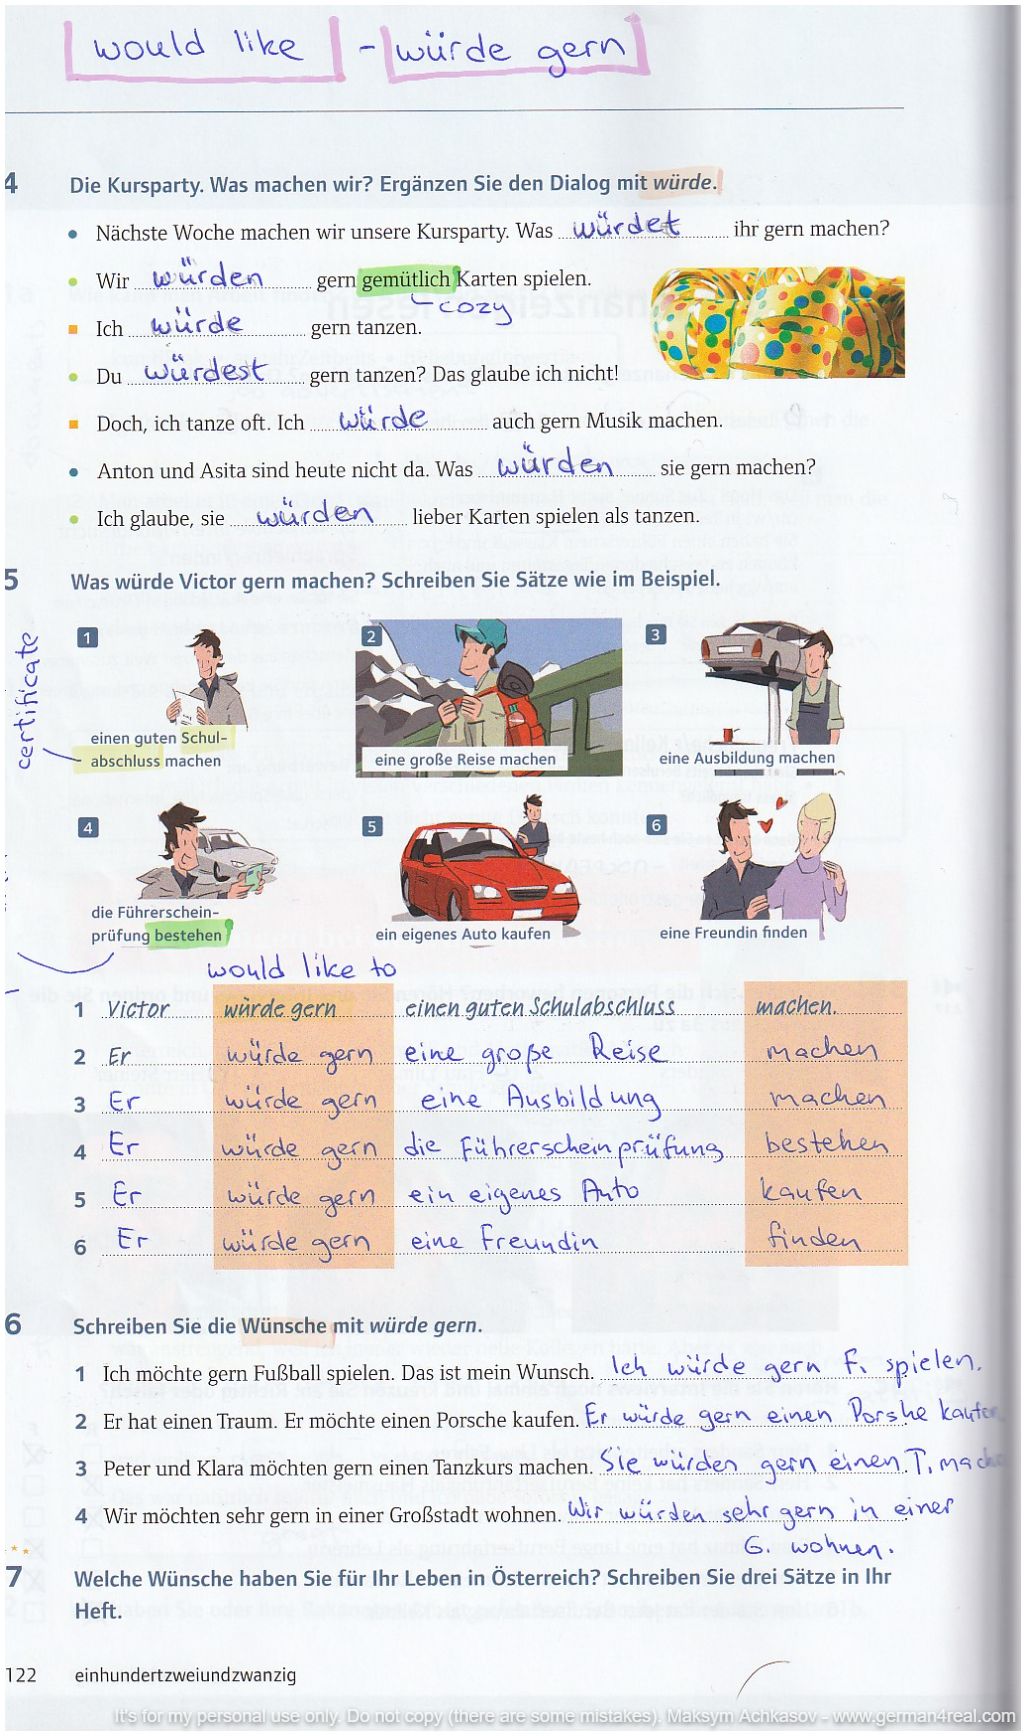 would like - würde gern
4 Die Kursparty. Was machen wir? Ergänzen Sie den Dialog mit würde.
• Nächste Woche machen wir unsere Kursparty. Was würdet ihr gern machen?
• Wir würden gern gemütlich Karten spielen.
cozy
▪ Ich würde gern tanzen.
• Du würdest gern tanzen? Das glaube ich nicht!
▪ Doch, ich tanze oft. Ich würde auch gern Musik machen.
• Anton und Asita sind heute nicht da. Was würden sie gern machen?
• Ich glaube, sie würden lieber Karten spielen als tanzen.
5 Was würde Victor gern machen? Schreiben Sie Sätze wie im Beispiel.
certificate
1
einen guten Schul-
abschluss machen
2
eine große Reise machen
3
eine Ausbildung machen
4
die Führerschein-
prüfung bestehen
5
ein eigenes Auto kaufen
6
eine Freundin finden
would like to
1 Victor würde gern einen guten Schulabschluss machen.
2 Er würde gern eine große Reise machen
3 Er würde gern eine Ausbildung machen
4 Er würde gern die Führerscheinprüfung bestehen
5 Er würde gern ein eigenes Auto kaufen
6 Er würde gern eine Freundin finden
6 Schreiben Sie die Wünsche mit würde gern.
1 Ich möchte gern Fußball spielen. Das ist mein Wunsch. Ich würde gern F. spielen.
2 Er hat einen Traum. Er möchte einen Porsche kaufen. Er würde gern einen Porshe kaufen
3 Peter und Klara möchten gern einen Tanzkurs machen. Sie würden gern einen T. machen
4 Wir möchten sehr gern in einer Großstadt wohnen. Wir würden sehr gern in einer
G. wohnen.
7 Welche Wünsche haben Sie für Ihr Leben in Österreich? Schreiben Sie drei Sätze in Ihr
Heft.
122 einhundertzweiundzwanzig
It's for my personal use only. Do not copy (there are some mistakes). Maksym Achkasov - www.german4real.com